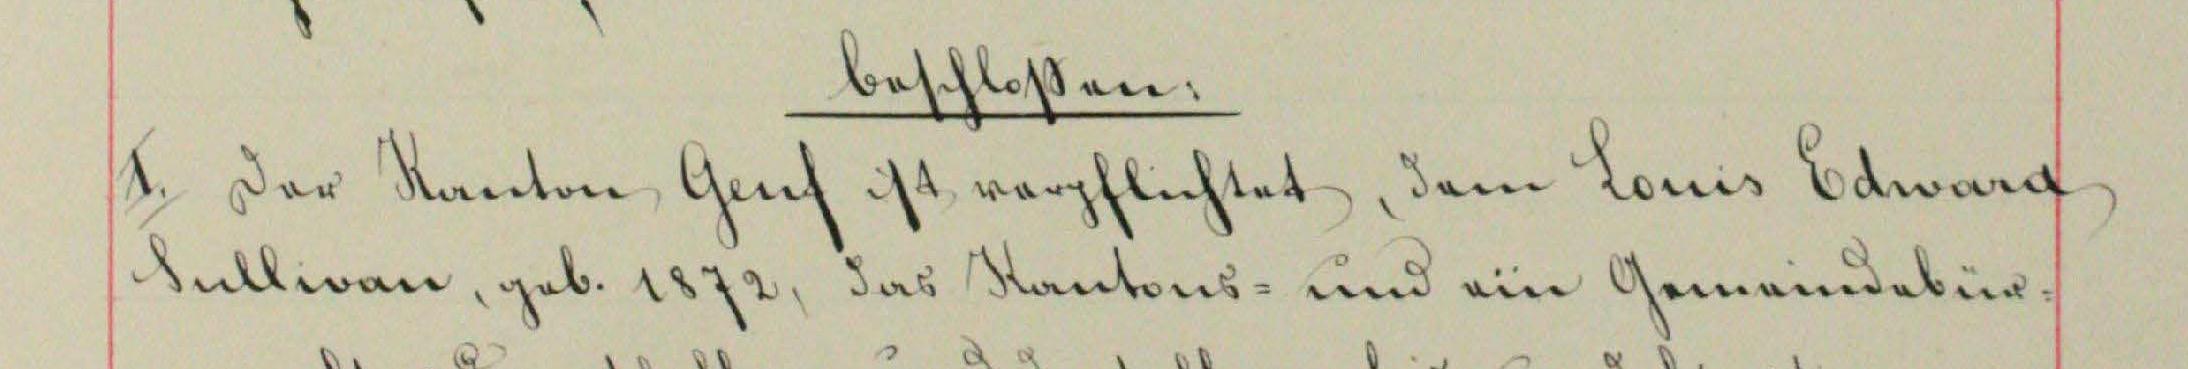 beschloßen:
1. Der Kanton Genf ist verpflichtet, dem Louis Edward
Sullivan, geb. 1872, das Kantons= und ein Gemeindebür=